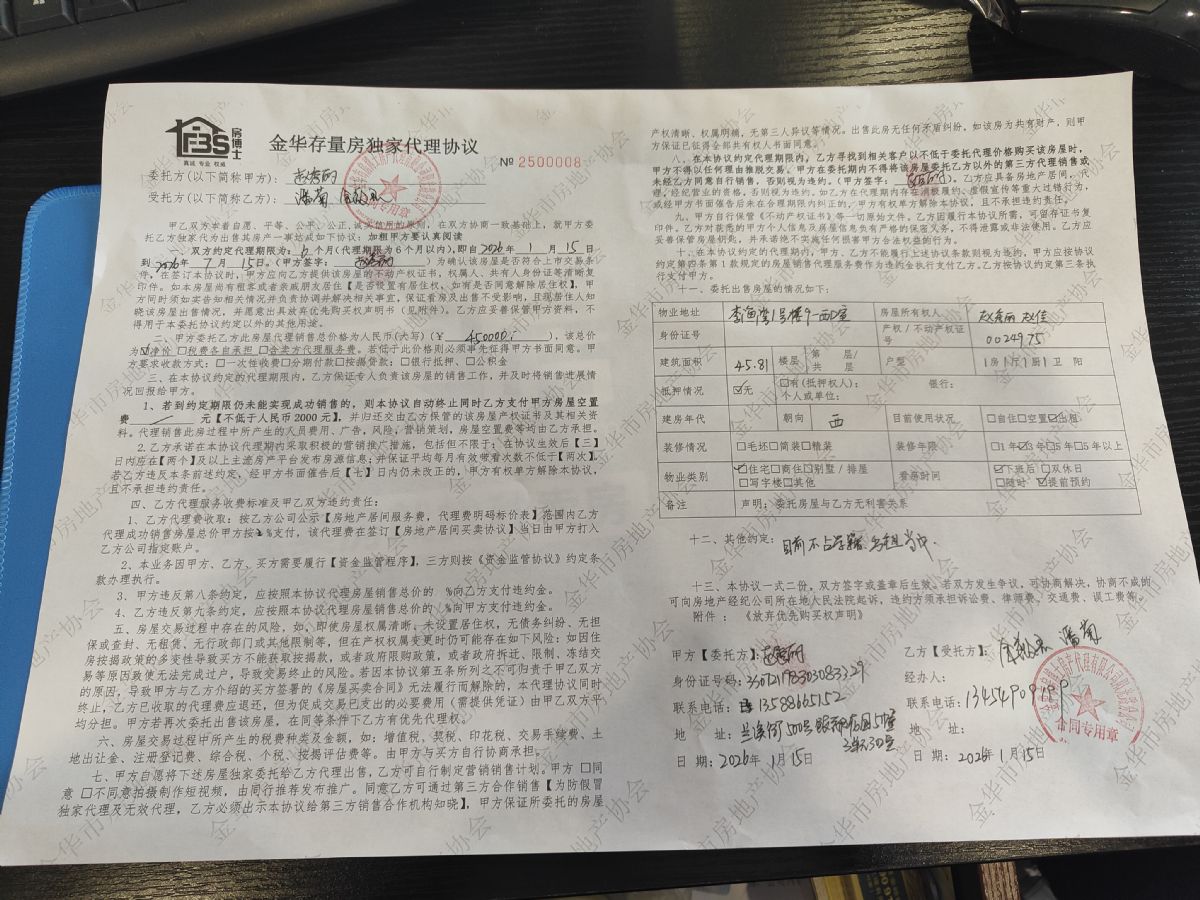 房博士
FBS
真诚 专业 权威
金华存量房独家代理协议
№ 2500008
委托方(以下简称甲方):
受托方(以下简称乙方):潘菊
甲乙双方本着自愿、平等、公平、公正、诚实信用的原则,在双方协商一致基础上,就甲方委
托乙方独家代为出售其房产一事达成如下协议:加粗甲方要认真阅读
一、双方约定代理期限为:6个月(代理期限为6个月以内),即自2026年1月15日
到2026年7月15日。(甲方签字:)为确认该房屋是否符合上市交易条
件,在签订本协议时,甲方应向乙方提供该房屋的不动产权证书,权属人、共有人身份证等清晰复
印件。如本房屋尚有租客或者亲戚朋友居住【是否设置有居住权、如有是否同意解除居住权】,甲
方同时须如实告知相关情况并负责协调并解决相关事宜,保证看房及出售不受影响,且现居住人知
晓该房屋出售情况,并愿意出具放弃优先购买权声明书(见附件)。乙方应妥善保管甲方资料,不
得用于本委托协议约定以外的其他用途。
二、甲方委托乙方此房屋代理销售总价格为人民币(大写)(¥450000.),该总价
为☑净价 □税费各自承担 □含卖方代理服务费。若低于此价格则必须事先征得甲方书面同意。甲
方要求收款方式:□一次性收费□分期付款□按揭贷;□银行抵押、□公积金
三、在本协议约定的代理期限内,乙方保证专人负责该房屋的销售工作,并及时将销售进展情
况回报给甲方。
1、若到约定期限仍未能实现成功销售的,则本协议自动终止同时乙方支付甲方房屋空置
费 / 元【不低于人民币2000元】,并归还交由乙方保管的该房屋产权证书及其相关资
料。代理销售此房过程中所产生的人员费用、广告、风险、营销策划、房屋空置费等均由乙方承担。
2.乙方承诺在本协议代理期内采取积极的营销推广措施,包括但不限于:在协议生效后【三】
日内应在【两个】及以上主流房产平台发布房源信息;并保证平均每月有效带看次数不低于【两次】,
若乙方违反本条前述约定,经甲方书面催告后【七】日内仍未改正的,甲方有权单方解除本协议,
且不承担违约责任。
四、乙方代理服务收费标准及甲乙双方违约责任:
1、乙方代理费收取:按乙方公司公示【房地产居间服务费,代理费明码标价表】范围内乙方
代理成功销售房屋总价甲方按%支付,该代理费在签订【房地产居间买卖协议】当日由甲方打入
乙方公司指定账户。
2、本业务因甲方、乙方、买方需要履行【资金监管程序】,三方则按《资金监管协议》约定条
款办理执行。
3、甲方违反第八条约定,应按照本协议代理房屋销售总价的 %向乙方支付违约金。
4、乙方违反第九条约定,应按照本协议代理房屋销售总价的 %向甲方支付违约金。
五、房屋交易过程中存在的风险,如、即使房屋权属清晰、未设置居住权,无债务纠纷、无担
保或查封、无租赁、无行政部门或其他限制等,但在产权权属变更时仍可能存在如下风险:如因住
房按揭政策的多变性导致买方不能获取按揭款,或者政府限购政策,或者政府拆迁、限制、冻结交
易等原因致使无法完成过户,导致交易终止的风险。若因本协议第五条所列之不可归责于甲乙双方
的原因,导致甲方与乙方介绍的买方签署的《房屋买卖合同》无法履行而解除的,本代理协议同时
终止,乙方已收取的代理费应退还,但为促成交易已支出的必要费用(需提供凭证)由甲乙双方平
均分担。甲方若再次委托出售该房屋,在同等条件下乙方有优先代理权。
六、房屋交易过程中所产生的税费种类及金额,如:增值税,契税、印花税,交易手续费、土
地出让金、注册登记费、综合税、个税、按揭评估费等。由甲方与买方自行协商承担。
七、甲方自愿将下述房屋独家委托给乙方代理出售,乙方可自行制定营销销售计划。甲方 □同
意 □不同意拍摄制作短视频,由同行推荐发布推广。同意乙方可通过第三方合作销售【为防假冒
独家代理及无效代理,乙方必须出示本协议给第三方销售合作机构知晓】,甲方保证所委托的房屋
产权清晰、权属明确,无第三人异议等情况。出售此房无任何矛盾纠纷,如该房为共有财产,则甲
方保证已征得全部共有权人书面同意。
八、在本协议约定代理期限内,乙方寻找到相关客户以不低于委托代理价格购买该房屋时,
甲方不得以任何理由推脱交易。甲方在委托期内不得将该房屋委托乙方以外的第三方代理销售或
未经乙方同意自行销售,否则视为违约。(甲方签字:)乙方应具备房地产居间、代
理、经纪营业的资格,否则视为违约。如乙方在代理期内存在消极履约、虚假宣传等重大过错行为,
或经甲方书面催告后未在合理期限内纠正的,甲方有权单方解除本协议,且不承担违约责任。
九、甲方自行保管《不动产权证书》等一切原始文件。乙方因履行本协议所需,可留存证书复
印件。乙方对获悉的甲方个人信息及房屋信息负有严格的保密义务,不得泄露或非法使用。乙方应
妥善保管房屋钥匙,并承诺绝不实施任何损害甲方合法权益的行为。
十、在本协议的代理期内,甲方、乙方不能履行上述协议条款则视为违约。甲方应按协议
约定第四条第1款规定的房屋销售代理服务费作为违约金执行支付乙方。乙方按协议约定第三条执
行支付甲方。
十一、委托出售房屋的情况如下:
物业地址 李渔湾1号楼9-西 房屋所有权人
身份证号 产权/不动产权证号 0024975
建筑面积 45.81 楼层 第 层/共 层 户型 1房1厅1厨1卫 阳
抵押情况 ☑无 □有(抵押权人): 银行: 个人或单位:
建房年代 朝向 西 目前使用状况 □自住□空置☑出租
装修情况 □毛坯□简装□精装 装修年限 □1年☑3年□5年□5年以上
物业类别 ☑住宅□商住□别墅/排屋 □写字楼□其他 看房时间 ☑下班后 □双休日 □随时 ☑提前预约
备注 声明:委托房屋与乙方无利害关系
十二、其他约定:目前不占学籍,另租当中.
十三、本协议一式二份,双方签字或盖章后生效。若双方发生争议,可协商解决,协商不成的
可向房地产经纪公司所在地人民法院起诉,违约方须承担诉讼费、律师费、交通费、误工费等。
附件:《放弃优先购买权声明》
甲方【委托方】:
乙方【受托方】: 潘菊
身份证号码:330721198303083329
经办人:
联系电话:13588665152
联系电话:13454909199
地 址:
地 址:
日 期:2026年1月15日
日 期:2026年1月15日
合同专用章
金华市房地产业协会